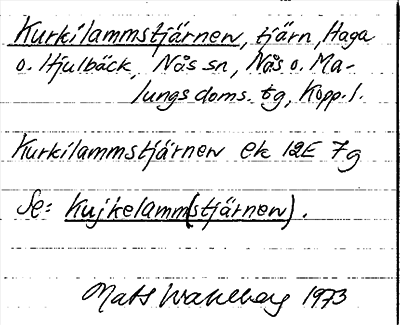 Kurkilammstjärnen, tjärn, Haga
o. Hjulbäck, Nås sn, Nås o. Ma-
lungs doms. tg, Kopp. l.
Kurkilammstjärnen ek 12E 7g
Se: Kujkelamm(stjärnen).
Mats Wahlberg 1973